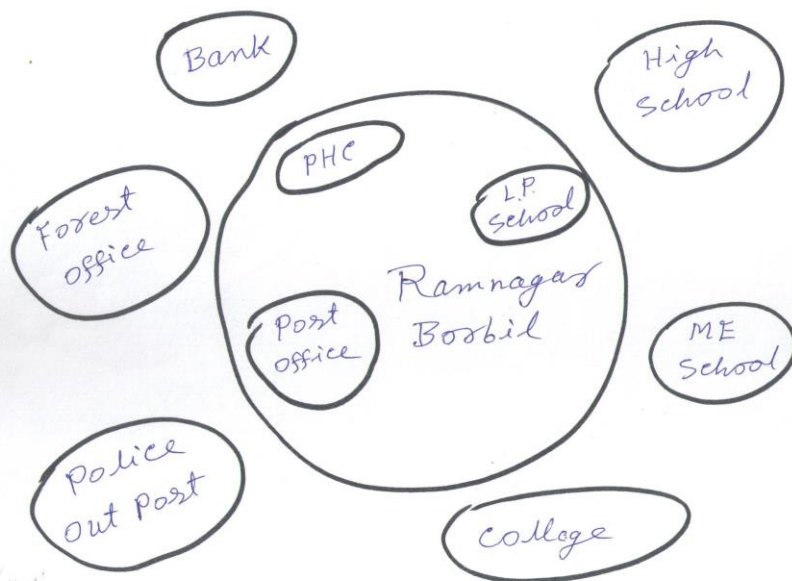 Bank
High
School
PHC
L.P.
School
Forest
office
Ramnagar
Borbil
Post
office
ME
School
Police
out Post
College